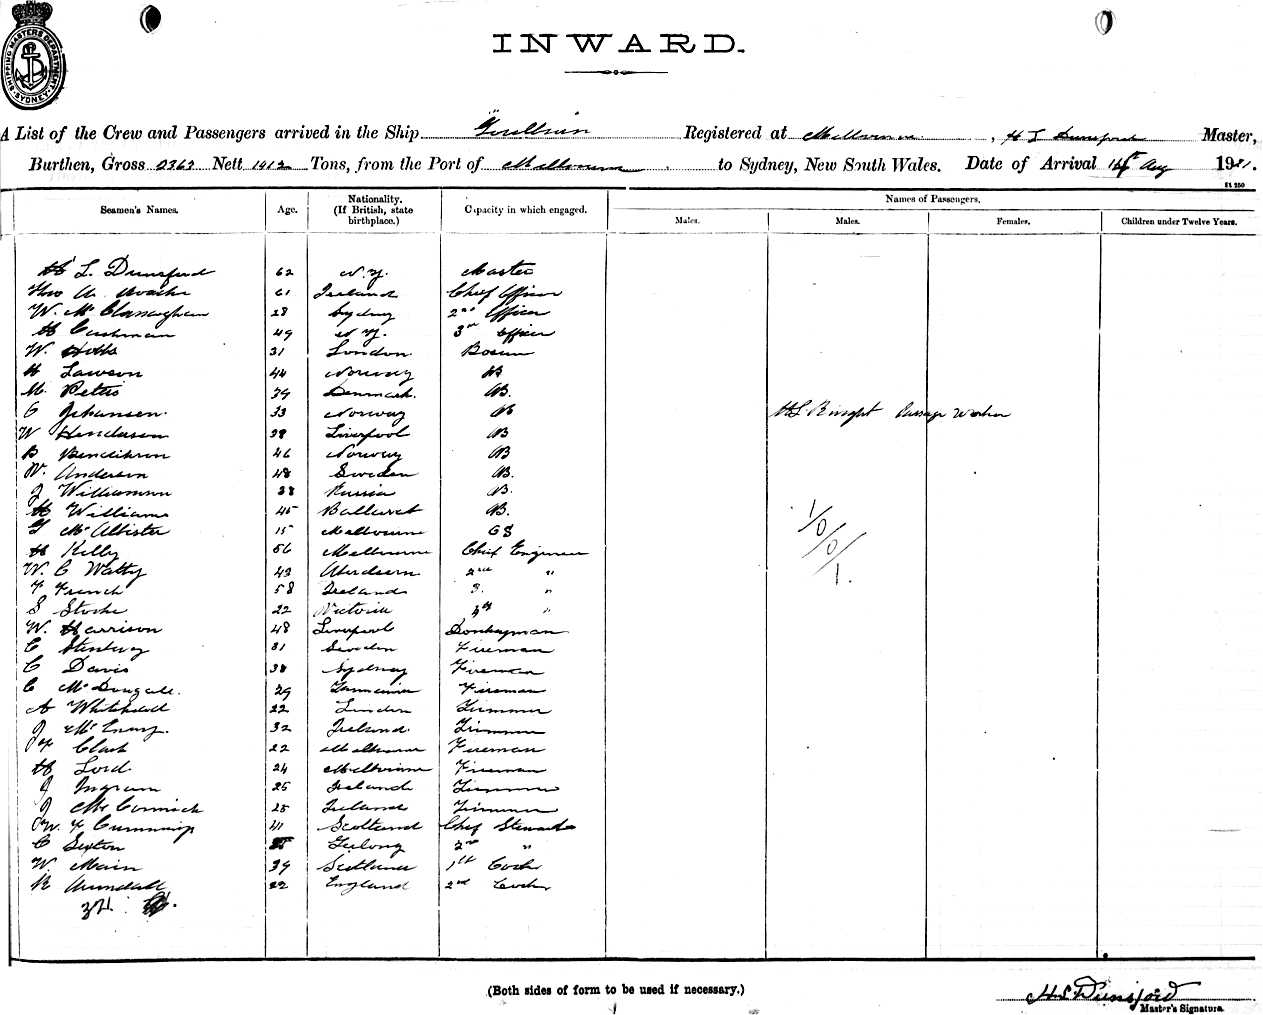 SHIPPING MASTERS DEPARTMENT SYDNEY
INWARD.
A List of the Crew and Passengers arrived in the Ship Registered at Melbourne, H L Dunsford Master,
Burthen, Gross 2362 Nett 1412 Tons, from the Port of Melbourne to Sydney, New South Wales. Date of Arrival 14th Aug 1921.
Seamen's Names. Age. Nationality. (If British, state birthplace.) Capacity in which engaged. Names of Passengers.
Males. Males. Females. Children under Twelve Years.
H L. Dunsford 62 N.Z. Master
Thos A. 61 Ireland Chief Officer
W. McClanaghan 28 Sydney 2nd Officer
H Cushman 49 N Z. 3rd Officer
W. Hobbs 31 London Bosun
H Lawson 44 Norway AB
M. Peters 39 Denmark. AB.
C Johansen. 33 Norway AB H L Knight Passage Worker
W Henderson 38 Liverpool AB
B Bendiksen 46 Norway AB
W. Anderson 48 Sweden AB.
J Williamson 38 Russia AB.
H Williams 45 Ballarat AB. 1/0/0/1.
G McAlister 15 Melbourne OS
H Kelly 56 Melbourne Chief Engineer
W. C Watty 43 Aberdeen 2nd "
F French 58 Ireland 3. "
S Stocke 22 Victoria 4th "
W. Harrison 48 Liverpool Donkeyman
C 31 Sweden Fireman
C Davis 38 Sydney Fireman
C McDougall. 29 Tasmania Fireman
A Whitehall 22 London Trimmer
J Mc 32 Ireland Trimmer
Clark 22 Melbourne Fireman
H Lord 24 Melbourne Fireman
J Ingram 25 Ireland Trimmer
J McCormick 25 Ireland Trimmer
W. F Cummings 41 Scotland Chief Steward
C Sexton Geelong 2nd "
W. Main 39 Scotland 1st Cook
R Arundall 22 England 2nd Cook
34.
(Both sides of form to be used if necessary.)
H L Dunsford
Master's Signature.